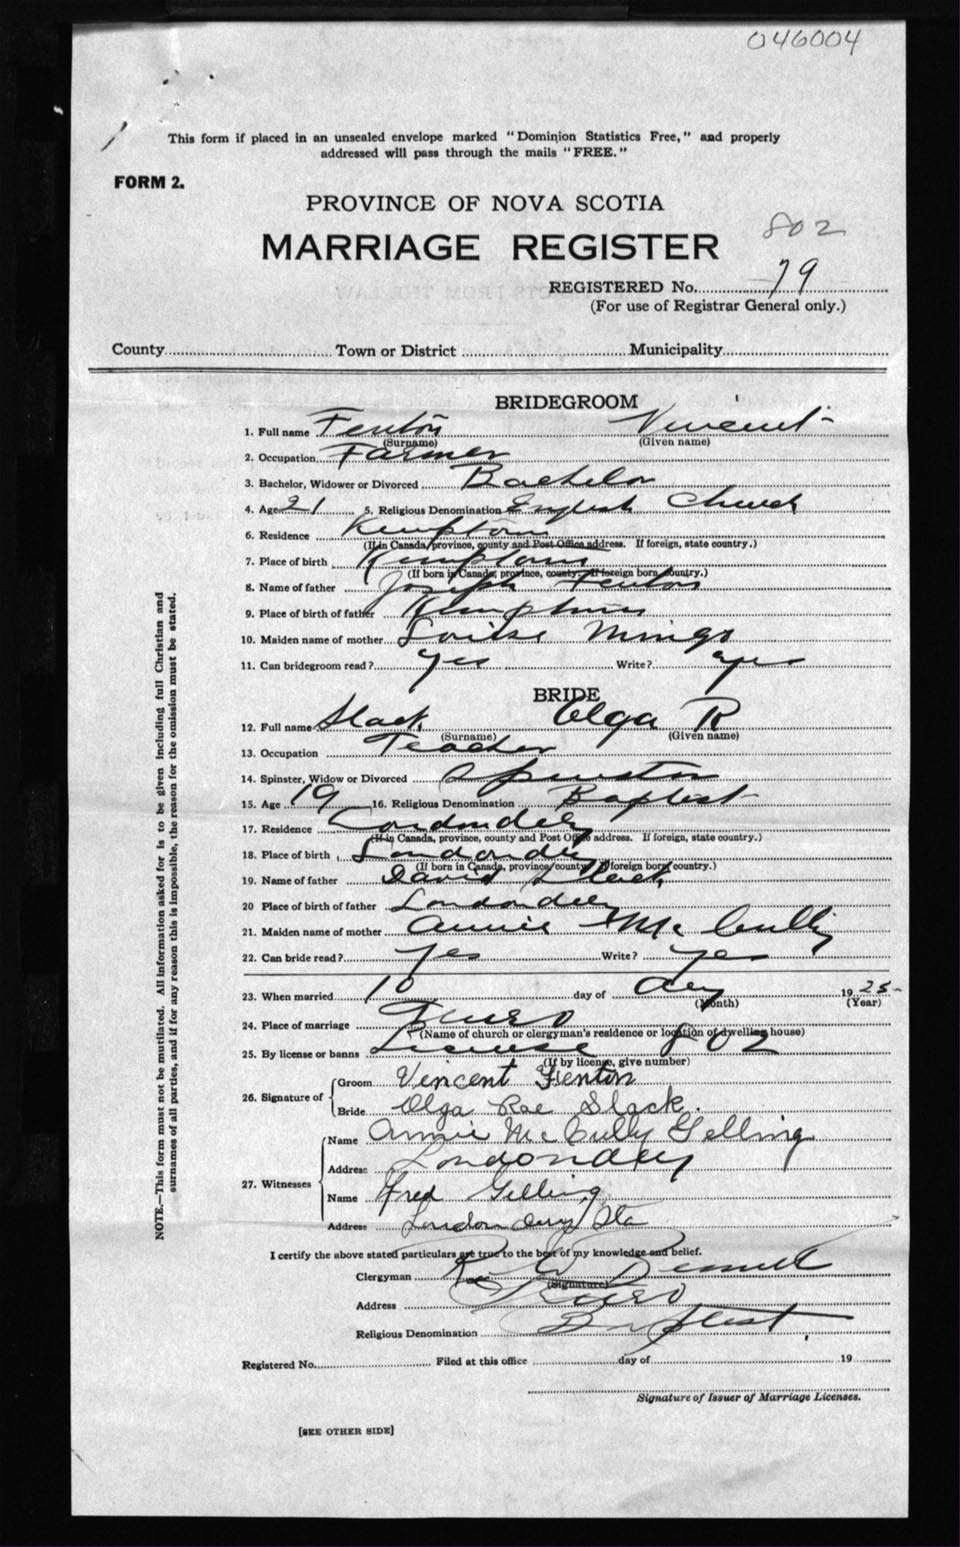 046004
This form if placed in an unsealed envelope marked "Dominion Statistics Free," and properly
addressed will pass through the mails "FREE."
FORM 2.
PROVINCE OF NOVA SCOTIA
802
MARRIAGE REGISTER
REGISTERED No. 79
(For use of Registrar General only.)
County Town or District Municipality
BRIDEGROOM
1. Full name Fenton Vincent
(Surname) (Given name)
2. Occupation Farmer
3. Bachelor, Widower or Divorced Bachelor
4. Age 21 5. Religious Denomination English Church
6. Residence Kemptown
(If in Canada, province, county and Post Office address. If foreign, state country.)
7. Place of birth Kemptown
(If born in Canada, province, county, if foreign born country.)
8. Name of father Joseph Fenton
9. Place of birth of father Kemptown
10. Maiden name of mother Louise Mingo
11. Can bridegroom read? yes Write? yes
BRIDE
12. Full name Slack Olga R
(Surname) (Given name)
13. Occupation Teacher
14. Spinster, Widow or Divorced Spinster
15. Age 19 16. Religious Denomination Baptist
17. Residence Londondery
(If in Canada, province, county and Post Office address. If foreign, state country.)
18. Place of birth Londondery
(If born in Canada, province, county, if foreign born country.)
19. Name of father David Slack
20 Place of birth of father Londondery
21. Maiden name of mother Annie McCully
22. Can bride read? yes Write? yes
23. When married 10 day of 1925
(Month) (Year)
24. Place of marriage Truro
(Name of church or clergyman's residence or location of dwelling house)
25. By license or banns License 802
(If by license, give number)
26. Signature of Groom Vincent Fenton
Bride Olga Rae Slack.
27. Witnesses Name Annie McCully Gelling
Address Londondery
Name Fred Gelling
Address Londonderry Sta
I certify the above stated particulars are true to the best of my knowledge and belief.
Clergyman R W
(Signature)
Address Truro
Religious Denomination Baptist.
Registered No. Filed at this office day of 19
Signature of Issuer of Marriage Licenses.
[SEE OTHER SIDE]
NOTE.—This form must not be mutilated. All information asked for is to be given including full Christian and
surnames of all parties, and if for any reason this is impossible, the reason for the omission must be stated.